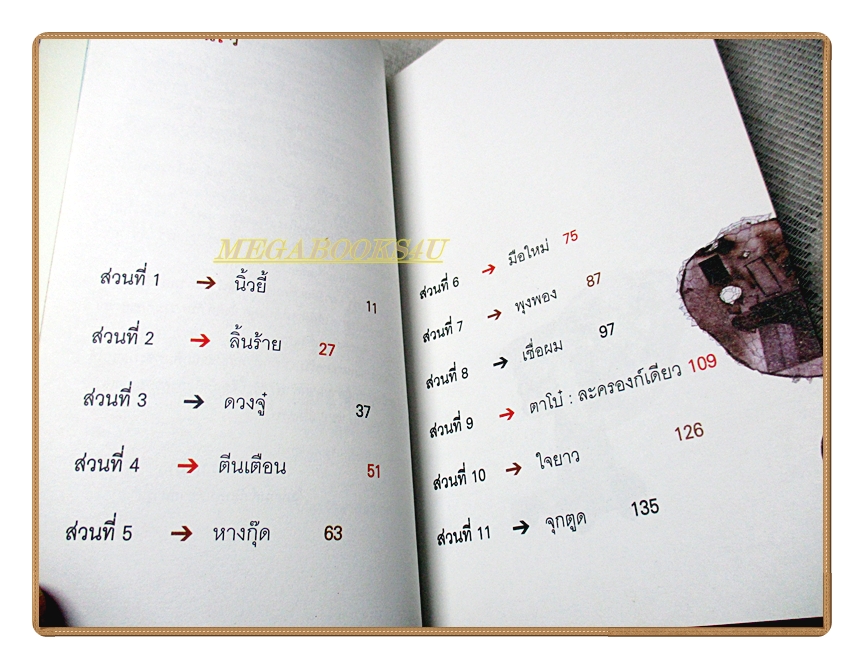 MEGABOOKS4U
ส่วนที่ 1 → นิ้วยี้ 11
ส่วนที่ 2 → ลิ้นร้าย 27
ส่วนที่ 3 → ดวงจู๋ 37
ส่วนที่ 4 → ตีนเตือน 51
ส่วนที่ 5 → หางกุ๊ด 63
ส่วนที่ 6 → มือใหม่ 75
ส่วนที่ 7 → พุงพอง 87
ส่วนที่ 8 → เชื่อผม 97
ส่วนที่ 9 → ตาโป๋ : ละครองก์เดียว 109
ส่วนที่ 10 → ใจยาว 126
ส่วนที่ 11 → จุกตูด 135